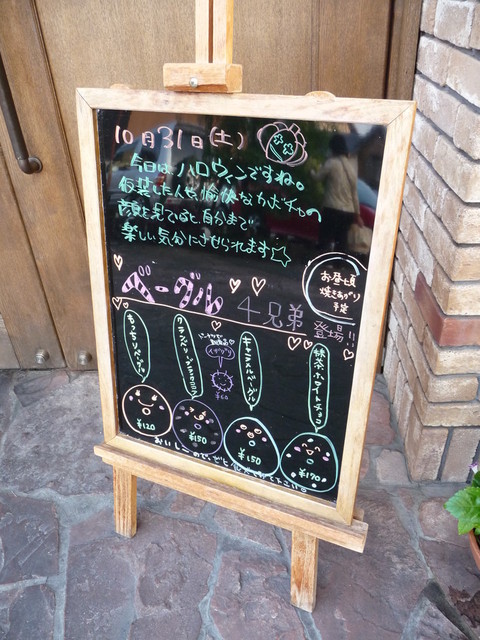 10月31日(土)
今日は、ハロウィンですね。
仮装した人や、愉快なカボチャの
顔を見てると、自分まで
楽しい気分にさせられます☆
お昼頃
焼きあがり
予定
ベーグル 4兄弟 登場!!
もっちりベーグル
クランベリー
キャラメルベーグル
抹茶ホワイトチョコ
¥120
¥150
¥150
¥170
おいしいので、ぜひ